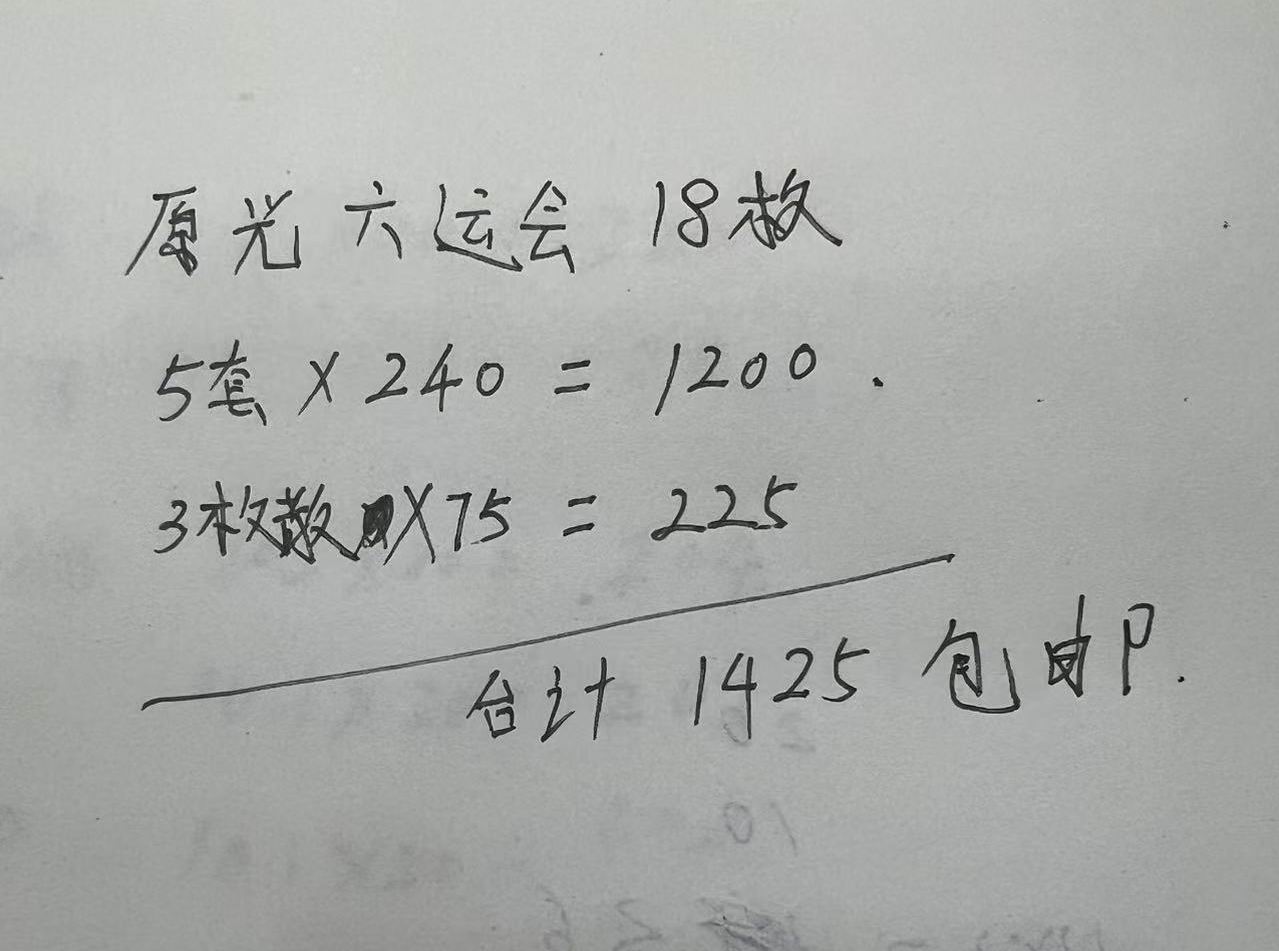 原光六运会 18枚
5套 × 240 = 1200.
3枚散 × 75 = 225
合计 1425 包邮.